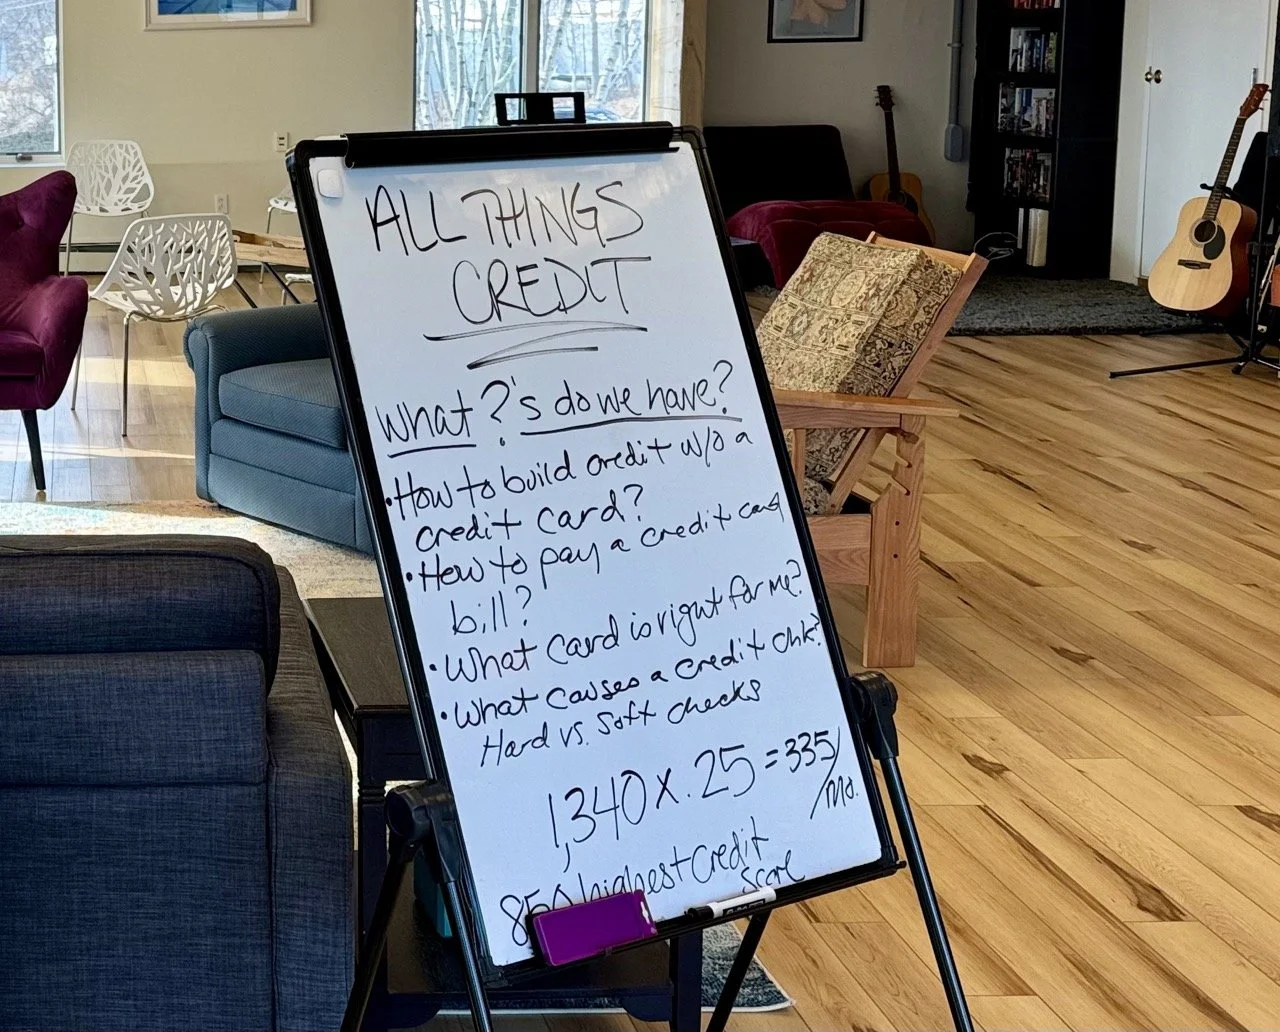 ALL THINGS
CREDIT
What ?'s do we have?
• How to build credit w/o a
credit card?
• How to pay a credit card
bill?
• What card is right for me?
• What causes a credit chk?
Hard vs. Soft checks
1,340 x .25 = 335/
mo.
850 highest credit
score